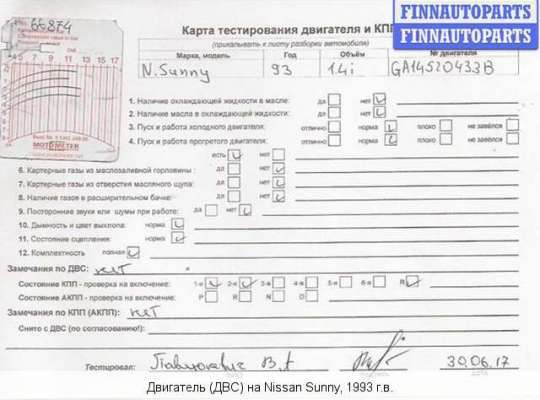 FINNAUTOPARTS
FINNAUTOPARTS
65874
5 7 9 11 13 15 17
MOTOMETER
Карта тестирования двигателя и КПП
(прикалывать к листу разборки автомобиля)
Марка, модель Год Объём № двигателя
N.Sunny 93 1.4i GA14520433B
1. Наличие охлаждающей жидкости в масле: да нет
2. Наличие масла в охлаждающей жидкости: да нет
3. Пуск и работа холодного двигателя: отлично норма плохо не завёлся
4. Пуск и работа прогретого двигателя: отлично норма плохо не завёлся
есть нет
6. Картерные газы из маслозаливной горловины: да нет
7. Картерные газы из отверстия масляного щупа: да нет
8. Наличие газов в расширительном бачке: да нет
9. Посторонние звуки или шумы при работе: да нет
10. Дымность и цвет выхлопа: норма
11. Состояние сцепления: норма
12. Комплектность полная
Замечания по ДВС: нет
Состояние КПП - проверка на включение: 1-я 2-я 3-я 4-я 5-я 6-я R
Состояние АКПП - проверка на включение: P R N D
Замечания по КПП (АКПП): нет
Снято с ДВС (по согласованию!):
Тестировал: В.А 30.06.17
подпись дата
Двигатель (ДВС) на Nissan Sunny, 1993 г.в.